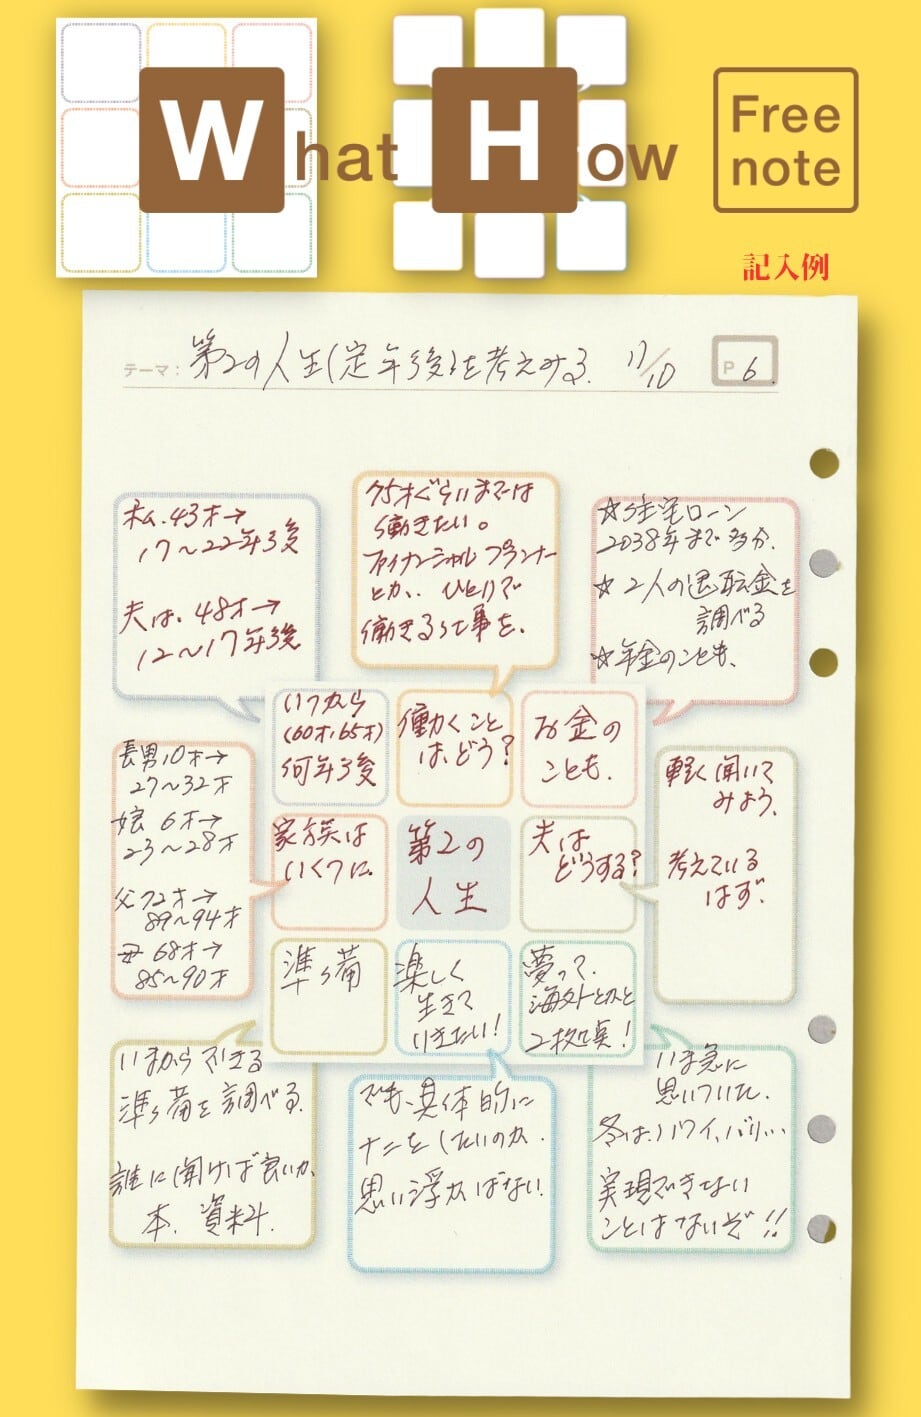 What How
Free
note
記入例
テーマ: 第2の人生(定年後)を考えてみる. 11/10 P 6.
私.43才→
17〜22年後
夫は、48才→
12〜17年後
75才ぐらいまでは
働きたい。
ファイナンシャルプランナー
とか、ひとりで
働きる仕事を、
☆住宅ローン
2038年まで多分.
☆2人の退転金を
調べる
☆年金のことも、
いつから
(60才、65才)
何年後
働くこと
は、どう?
お金の
ことも.
長男10才→
27〜32才
娘 6才→
23〜28才
父72才→
89〜94才
母 68才→
85〜90才
家族は
いくつに.
第2の
人生
夫は
どうする?
軽く聞いて
みよう、
考えている
はず.
準備
楽しく
生きて
いきたい!
夢って、
海外とかと
2拠点!
いまからできる
準備を調べる.
誰に聞けば良いか、
本、資料.
でも、具体的に
ナニをしたいのか.
思い浮かばない.
いま急に
思いついた.
冬は、ハワイ、バリ...
実現できない
ことはないぞ!!